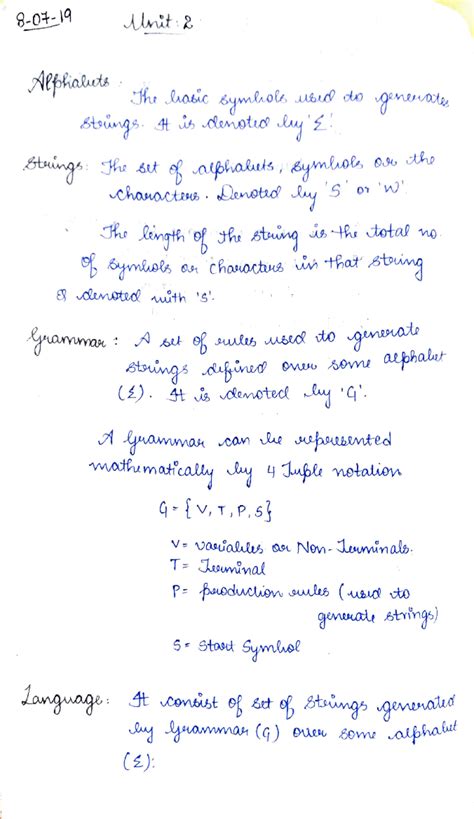 8-07-19
Unit: 2
Alphabets.
The basic symbols used to generates
strings. It is denoted by 'Σ'.
Strings: The set of alphabets, symbols or the
characters. Denoted by 'S' or 'W'.
The length of the string is the total no.
of symbols or characters in that string
& denoted with 'S'.
Grammar: A set of rules used to generate
strings defined over some alphabet
(Σ). It is denoted by 'G'.
A Grammar can be represented
mathematically by 4 Tuple notation
G = {V, T, P, S}
V = variables or Non-Terminals.
T = Terminal
P = production rules (used to
generate strings)
S = Start Symbol
Language: It consist of set of strings generated
by Grammar (G) over some alphabet
(Σ):